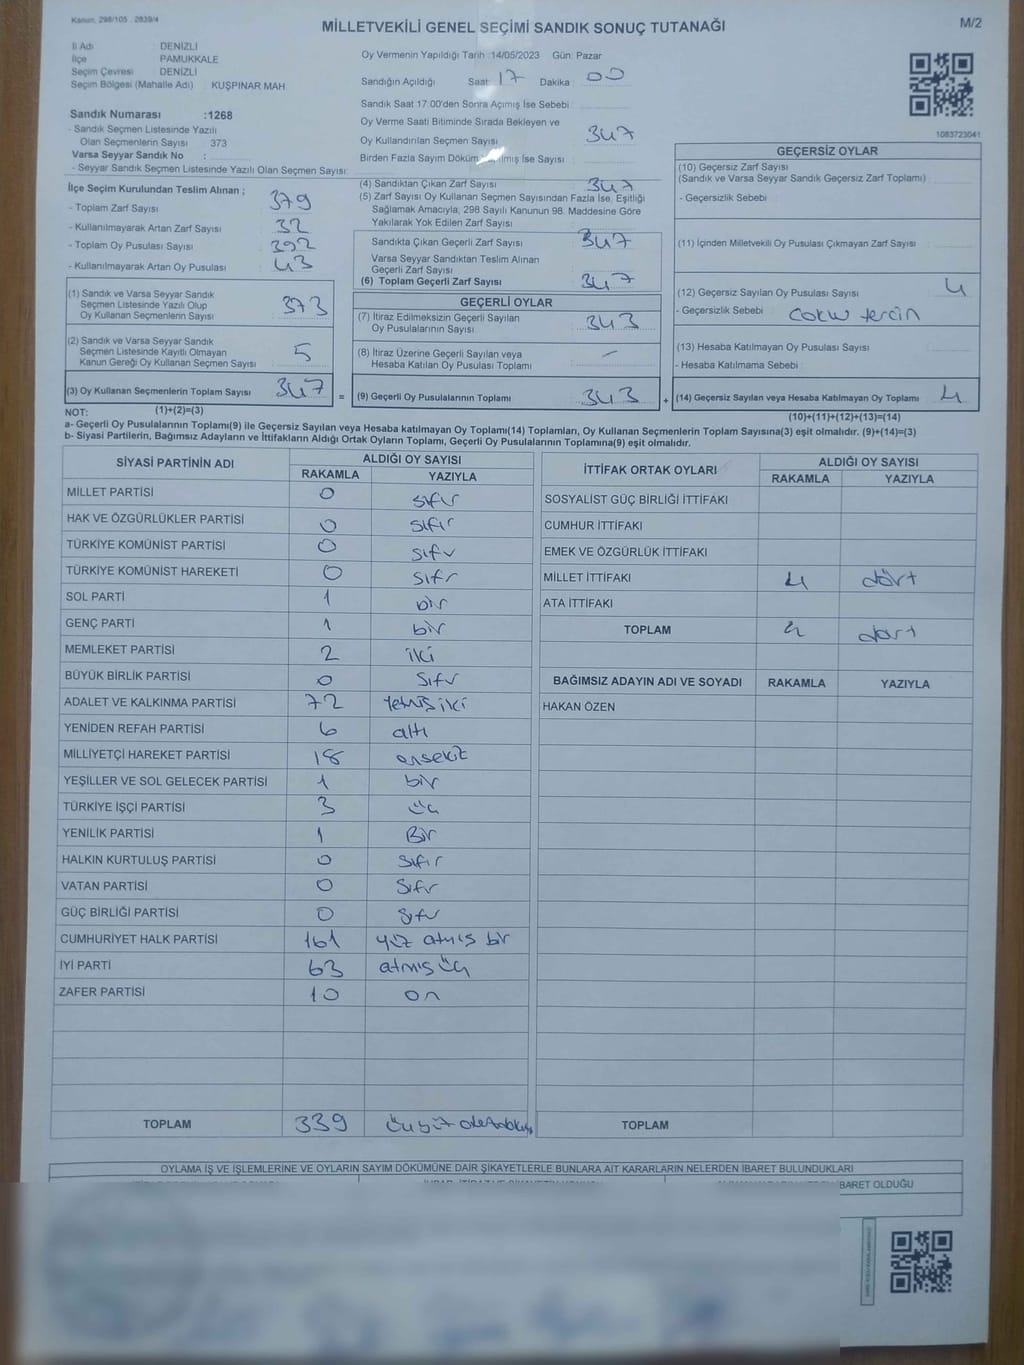 Kanun, 298/105 . 2839/4
MİLLETVEKİLİ GENEL SEÇİMİ SANDIK SONUÇ TUTANAĞI
M/2
İl Adı DENİZLİ
İlçe PAMUKKALE
Seçim Çevresi DENİZLİ
Seçim Bölgesi (Mahalle Adı) KUŞPINAR MAH
Sandık Numarası :1268
- Sandık Seçmen Listesinde Yazılı
Olan Seçmenlerin Sayısı 373
Varsa Seyyar Sandık No :
- Seyyar Sandık Seçmen Listesinde Yazılı Olan Seçmen Sayısı:
İlçe Seçim Kurulundan Teslim Alınan ;
- Toplam Zarf Sayısı 379
- Kullanılmayarak Artan Zarf Sayısı 32
- Toplam Oy Pusulası Sayısı 392
- Kullanılmayarak Artan Oy Pusulası 43
(1) Sandık ve Varsa Seyyar Sandık
Seçmen Listesinde Yazılı Olup
Oy Kullanan Seçmenlerin Sayısı 373
(2) Sandık ve Varsa Seyyar Sandık
Seçmen Listesinde Kayıtlı Olmayan
Kanun Gereği Oy Kullanan Seçmen Sayısı 5
(3) Oy Kullanan Seçmenlerin Toplam Sayısı 347
(1)+(2)=(3)
Oy Vermenin Yapıldığı Tarih :14/05/2023 Gün: Pazar
Sandığın Açıldığı Saat 17 Dakika 00
Sandık Saat 17.00'den Sonra Açımış İse Sebebi
Oy Verme Saati Bitiminde Sırada Bekleyen ve
Oy Kullandırılan Seçmen Sayısı 347
Birden Fazla Sayım Döküm İse Sayısı
(4) Sandıktan Çıkan Zarf Sayısı 347
(5) Zarf Sayısı Oy Kullanan Seçmen Sayısından Fazla İse, Eşitliği
Sağlamak Amacıyla, 298 Sayılı Kanunun 98. Maddesine Göre
Yakılarak Yok Edilen Zarf Sayısı
Sandıkta Çıkan Geçerli Zarf Sayısı 347
Varsa Seyyar Sandıktan Teslim Alınan
Geçerli Zarf Sayısı
(6) Toplam Geçerli Zarf Sayısı 347
GEÇERLİ OYLAR
(7) İtiraz Edilmeksizin Geçerli Sayılan
Oy Pusulalarının Sayısı 343
(8) İtiraz Üzerine Geçerli Sayılan veya
Hesaba Katılan Oy Pusulası Toplamı —
= (9) Geçerli Oy Pusulalarının Toplamı 343 +
1083723041
GEÇERSİZ OYLAR
(10) Geçersiz Zarf Sayısı
(Sandık ve Varsa Seyyar Sandık Geçersiz Zarf Toplamı)
- Geçersizlik Sebebi
(11) İçinden Milletvekili Oy Pusulası Çıkmayan Zarf Sayısı
(12) Geçersiz Sayılan Oy Pusulası Sayısı 4
- Geçersizlik Sebebi
(13) Hesaba Katılmayan Oy Pusulası Sayısı
- Hesaba Katılmama Sebebi
(14) Geçersiz Sayılan veya Hesaba Katılmayan Oy Toplamı 4
(10)+(11)+(12)+(13)=(14)
NOT:
a- Geçerli Oy Pusulalarının Toplamı(9) ile Geçersiz Sayılan veya Hesaba katılmayan Oy Toplamı(14) Toplamları, Oy Kullanan Seçmenlerin Toplam Sayısına(3) eşit olmalıdır. (9)+(14)=(3)
b- Siyasi Partilerin, Bağımsız Adayların ve İttifakların Aldığı Ortak Oyların Toplamı, Geçerli Oy Pusulalarının Toplamına(9) eşit olmalıdır.
SİYASİ PARTİNİN ADI ALDIĞI OY SAYISI
RAKAMLA YAZIYLA
MİLLET PARTİSİ 0 sıfır
HAK VE ÖZGÜRLÜKLER PARTİSİ 0 sıfır
TÜRKİYE KOMÜNİST PARTİSİ 0 sıfır
TÜRKİYE KOMÜNİST HAREKETİ 0 sıfır
SOL PARTİ 1 bir
GENÇ PARTİ 1 bir
MEMLEKET PARTİSİ 2 iki
BÜYÜK BİRLİK PARTİSİ 0 sıfır
ADALET VE KALKINMA PARTİSİ 72 yetmiş iki
YENİDEN REFAH PARTİSİ 6 altı
MİLLİYETÇİ HAREKET PARTİSİ 18 onsekiz
YEŞİLLER VE SOL GELECEK PARTİSİ 1 bir
TÜRKİYE İŞÇİ PARTİSİ 3 üç
YENİLİK PARTİSİ 1 Bir
HALKIN KURTULUŞ PARTİSİ 0 sıfır
VATAN PARTİSİ 0 sıfır
GÜÇ BİRLİĞİ PARTİSİ 0 sıfır
CUMHURİYET HALK PARTİSİ 161 yüz atmış bir
İYİ PARTİ 63 atmış üç
ZAFER PARTİSİ 10 on
TOPLAM 339
İTTİFAK ORTAK OYLARI ALDIĞI OY SAYISI
RAKAMLA YAZIYLA
SOSYALİST GÜÇ BİRLİĞİ İTTİFAKI
CUMHUR İTTİFAKI
EMEK VE ÖZGÜRLÜK İTTİFAKI
MİLLET İTTİFAKI 4 dört
ATA İTTİFAKI
TOPLAM 4 dört
BAĞIMSIZ ADAYIN ADI VE SOYADI RAKAMLA YAZIYLA
HAKAN ÖZEN
TOPLAM
OYLAMA İŞ VE İŞLEMLERİNE VE OYLARIN SAYIM DÖKÜMÜNE DAİR ŞİKAYETLERLE BUNLARA AİT KARARLARIN NELERDEN İBARET BULUNDUKLARI
İBARET OLDUĞU